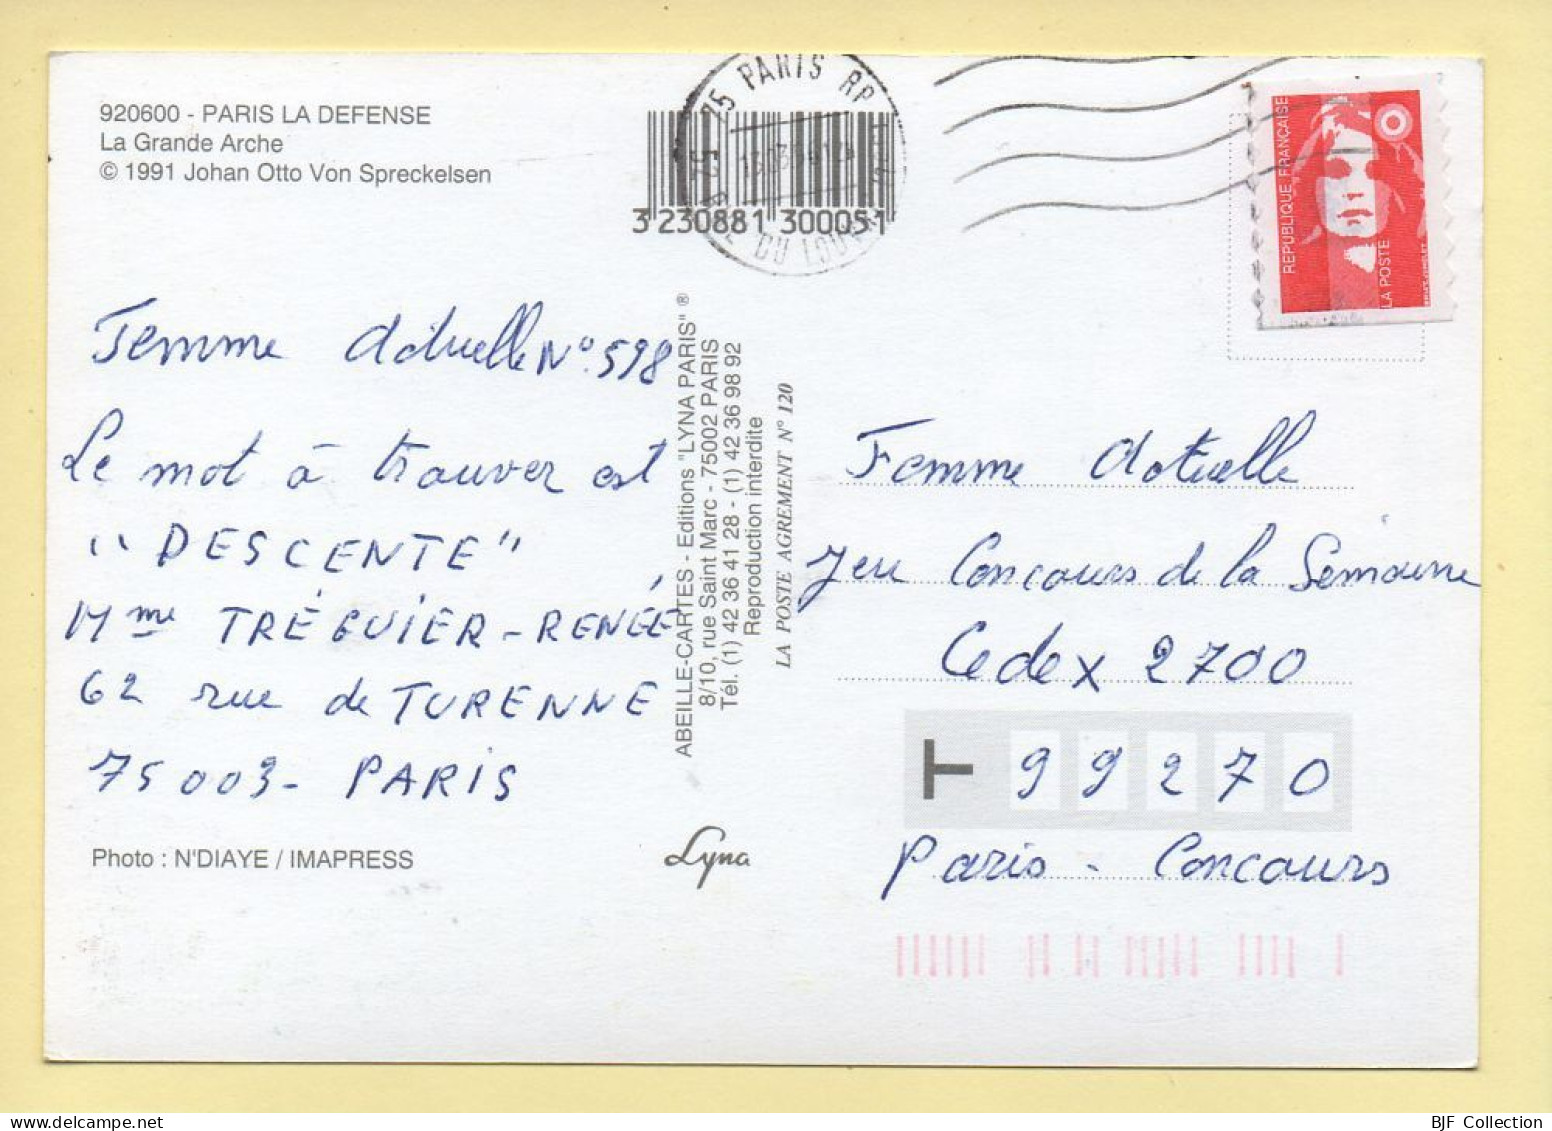 920600 - PARIS LA DEFENSE
La Grande Arche
© 1991 Johan Otto Von Spreckelsen
3 230881 300051
75 PARIS RP
DU LOUVRE
REPUBLIQUE FRANÇAISE
LA POSTE
Femme Actuelle N° 598
Le mot à trouver est
"DESCENTE"
Mme TRÉGUIER - RENÉE
62 rue de TURENNE
75003 - PARIS
Photo : N'DIAYE / IMAPRESS
ABEILLE-CARTES - Editions "LYNA PARIS" ®
8/10, rue Saint Marc - 75002 PARIS
Tél. (1) 42 36 41 28 - (1) 42 36 98 92
Reproduction interdite
LA POSTE AGREMENT N° 120
Lyna
Femme Actuelle
Jeu Concours de la Semaine
Cedex 2700
T 99270
Paris - Concours
BJF Collection